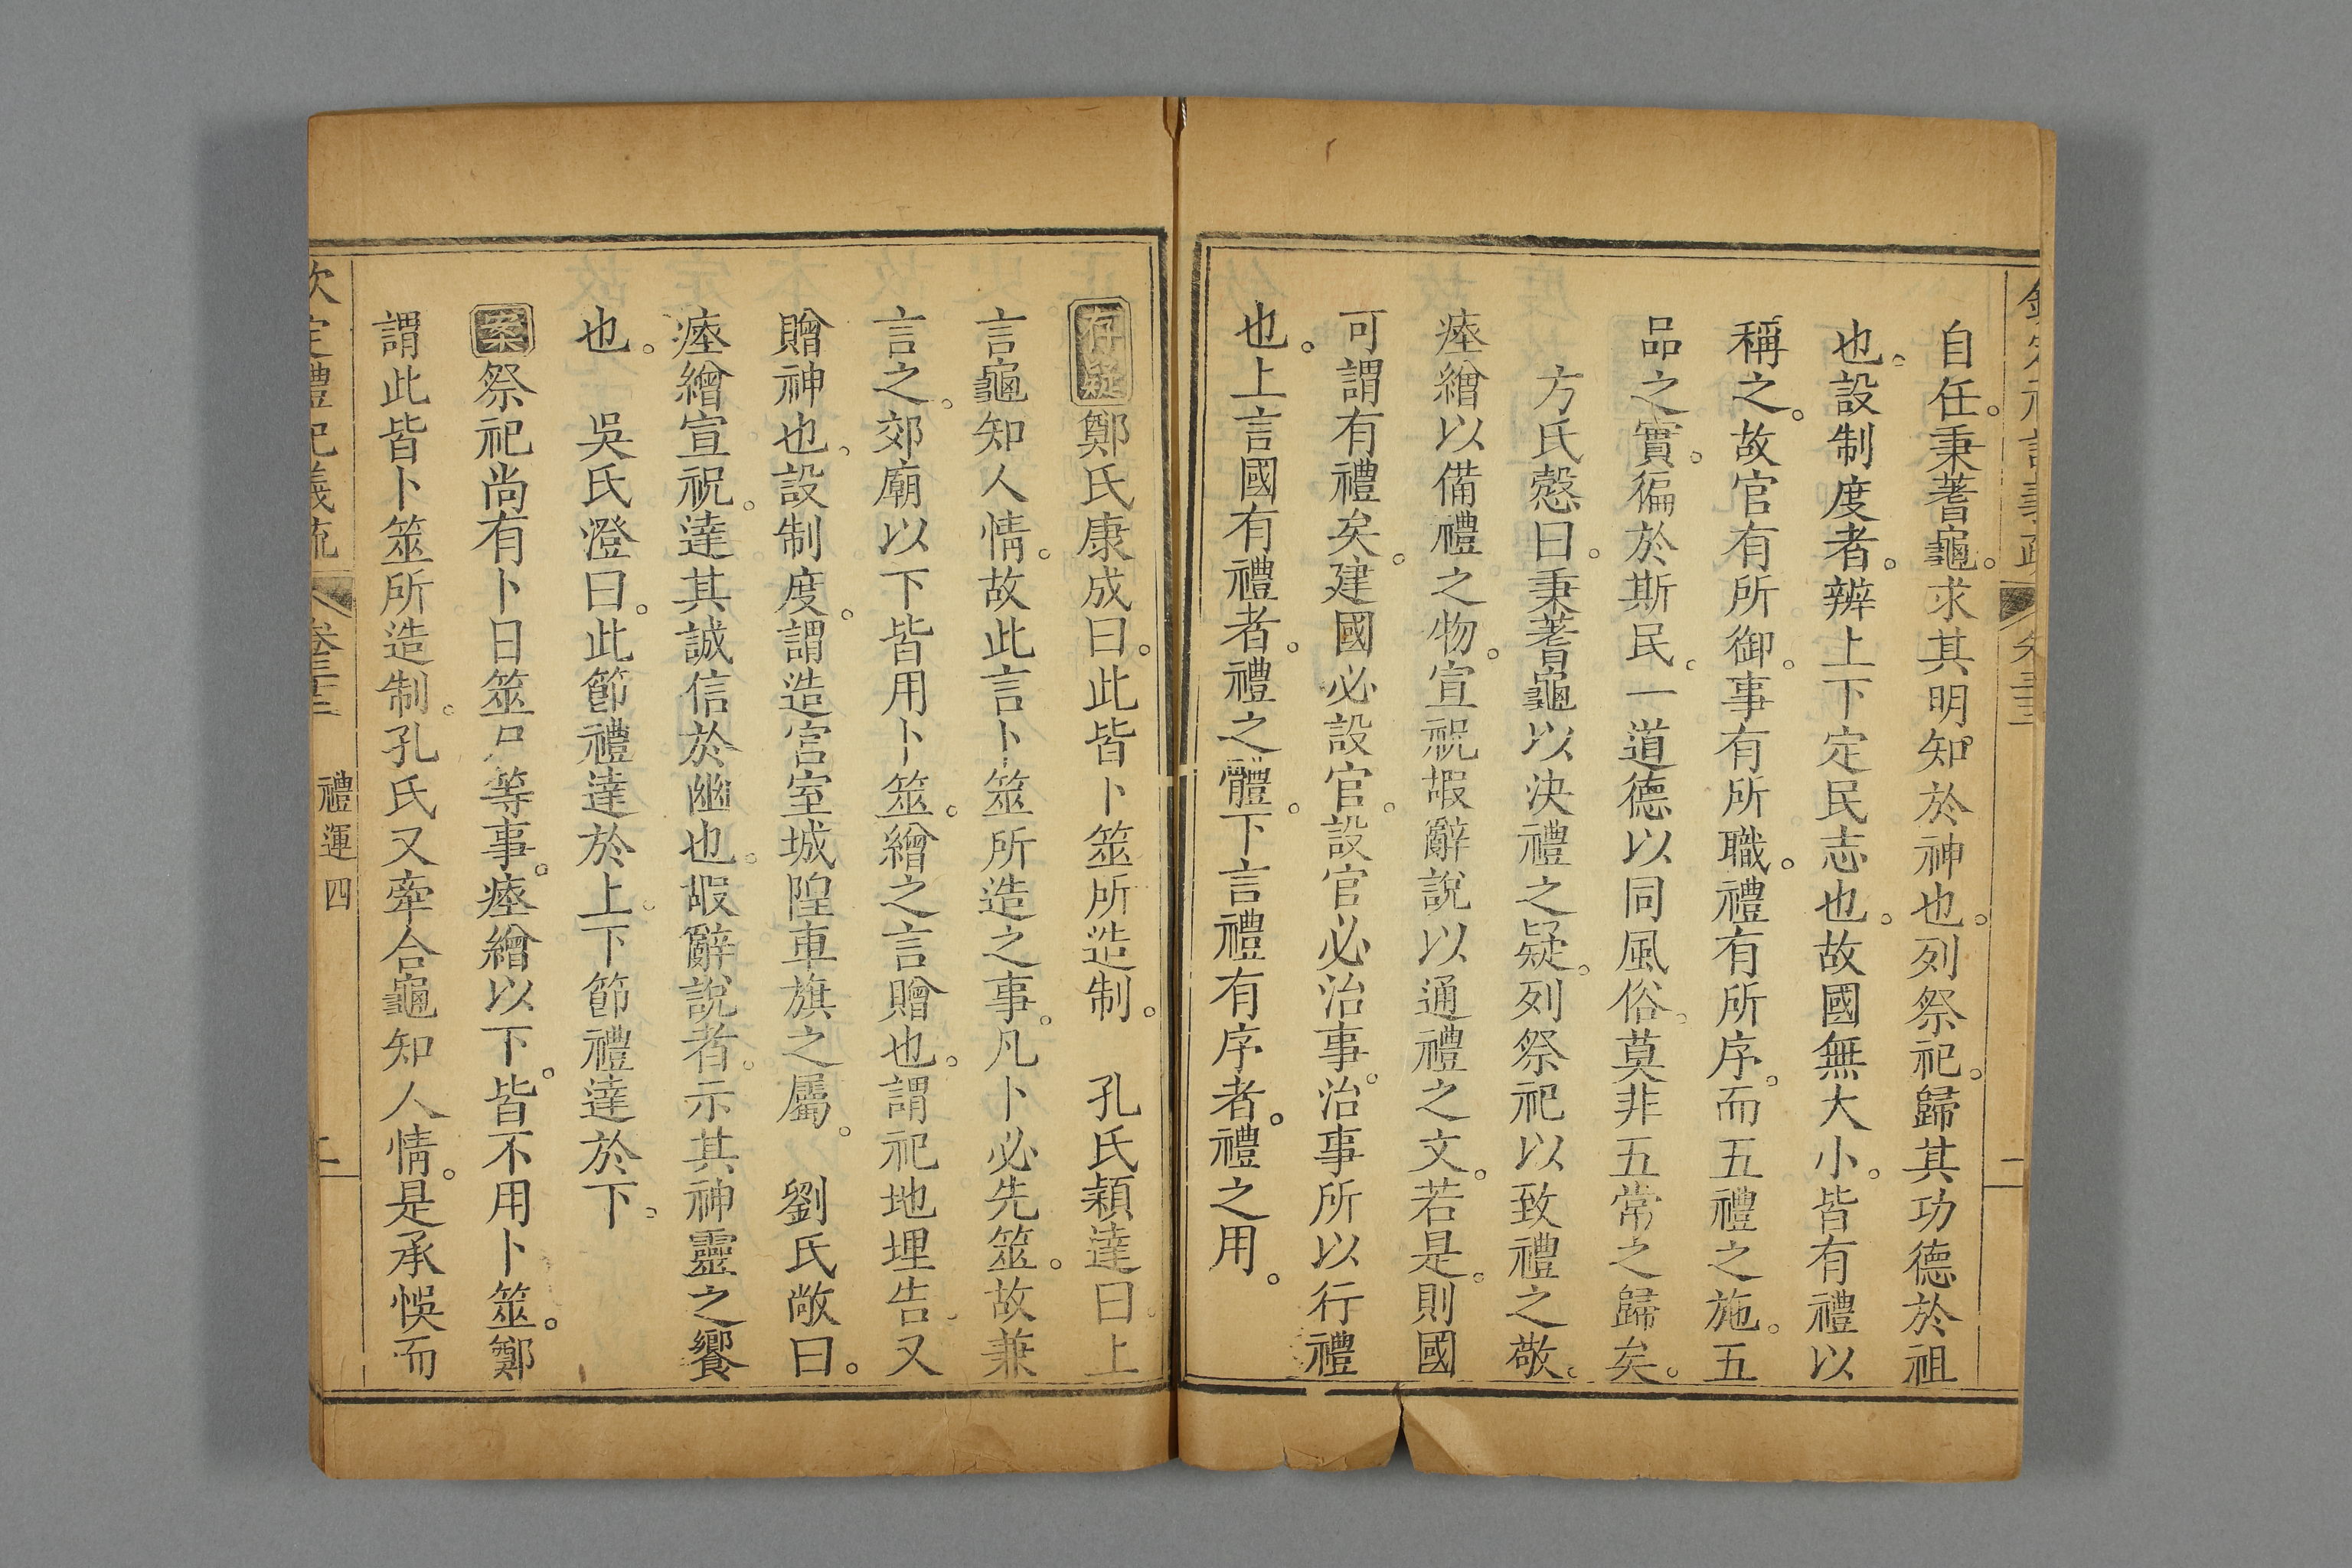 自任。秉蓍龜。求其明知於神也。列祭祀。歸其功德於祖
也。設制度者。辨上下定民志也。故國無大小。皆有禮以
稱之。故官有所御。事有所職。禮有所序。而五禮之施。五
品之實。徧於斯民。一道德以同風俗。莫非五常之歸矣。
方氏慤曰。秉蓍龜以決禮之疑。列祭祀以致禮之敬。
瘞繒以備禮之物。宣祝嘏辭說以通禮之文。若是。則國
可謂有禮矣。建國必設官。設官必治事。治事所以行禮
也。上言國有禮者。禮之體。下言禮有序者。禮之用。
存疑鄭氏康成曰。此皆卜筮所造制。 孔氏穎達曰。上
言龜知人情。故此言卜筮所造之事。凡卜必先筮。故兼
言之。郊廟以下皆用卜筮。繒之言贈也。謂祀地埋告。又
贈神也。設制度。謂造宮室城隍車旗之屬。 劉氏敞曰。
瘞繒宣祝。達其誠信於幽也。嘏辭說者。示其神靈之饗
也。 吳氏澄曰。此節禮達於上。下節禮達於下。
案祭祀尚有卜日筮尸等事。瘞繒以下。皆不用卜筮。鄭
謂此皆卜筮所造制。孔氏又牽合龜知人情。是承悞而
定禮記義疏 卷三十三 禮運四